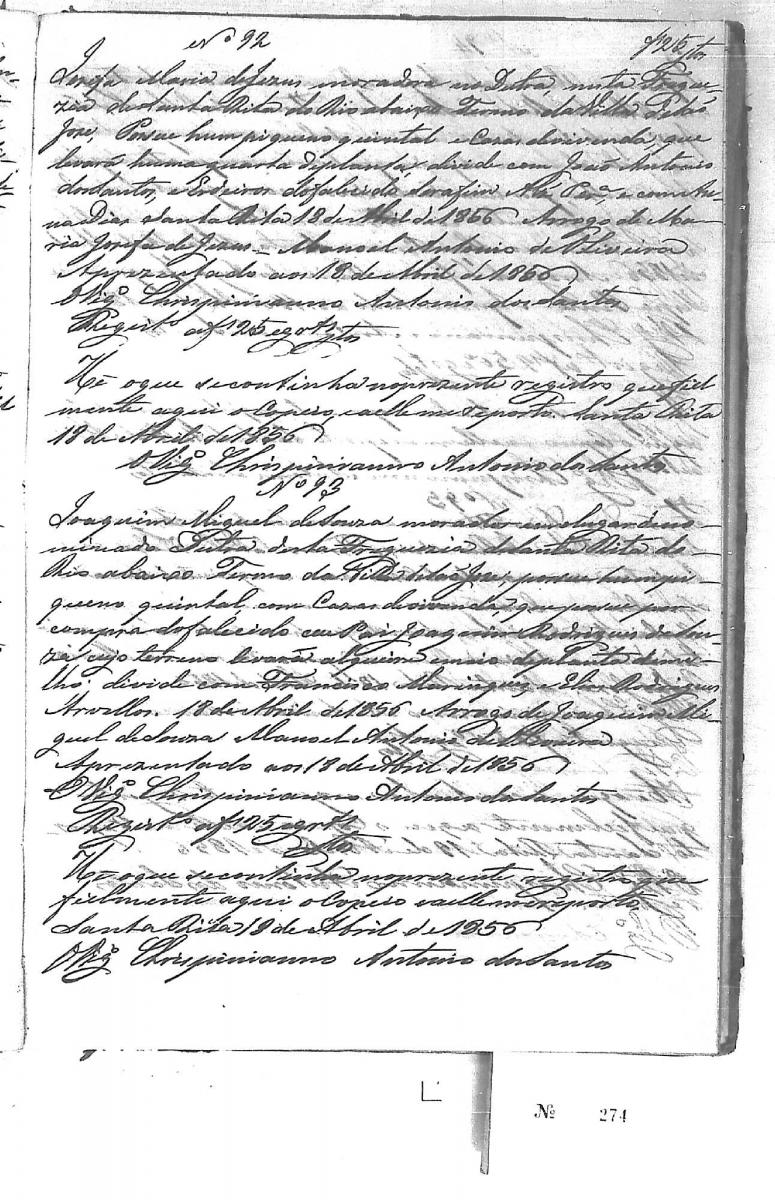 Nº 92
Josefa Maria de Jezus moradora na Petra, nesta Fregue-
zia de Santa Rita do Rio abaixo Termo da Villa de São
Joze, Posue hum piqueno quintal e Cazas de vivenda, que
levará huma quarta de planta, divide com João Antonio
dos Santos, e Erdeiros do falecido Serafim Per.ª, e com An-
na Dias Santa Rita 18 de Abril de 1866 Arrogo de Ma-
ria Josefa de Jezus - Manoel Antonio de Oliveira
Aprezentado aos 18 de Abril de 1866
O Vigº Chrispinianno Antonio dos Santos
Regist.º af 125
Hé o que se continha no prezente registro que fiel
mente aqui o Copeio, e a elle me reporto. Santa Rita
18 de Abril de 1856
O Vigº Chrispinianno Antonio dos Santos
Nº 93
Joaquim Miguel de Souza morador em o lugar deno-
minado Petra desta Freguezia de Santa Rita do
Rio abaixo Termo da Villa de São Joze, posue hum pi-
queno quintal com Cazas de vivenda, que posue por
compra do falecido seu Pai Joaquim Rodrigues de Sou-
za, cujo terreno levará alqueire e meio de planta de mi-
lho, divide com Francisco e Elias Rodrigues
18 de Abril de 1856 Arrogo de Joaquim Mi-
guel de Souza Manoel Antonio de Oliveira
Aprezentado aos 18 de Abril de 1856
O Vigº Chrispinianno Antonio dos Santos
Regist.º af 125
Hé o que se continha no prezente registro que
fielmente aqui o Copeio e a elle me reporto
Santa Rita 18 de Abril de 1856
O Vigº Chrispinianno Antonio dos Santos
Nº 274